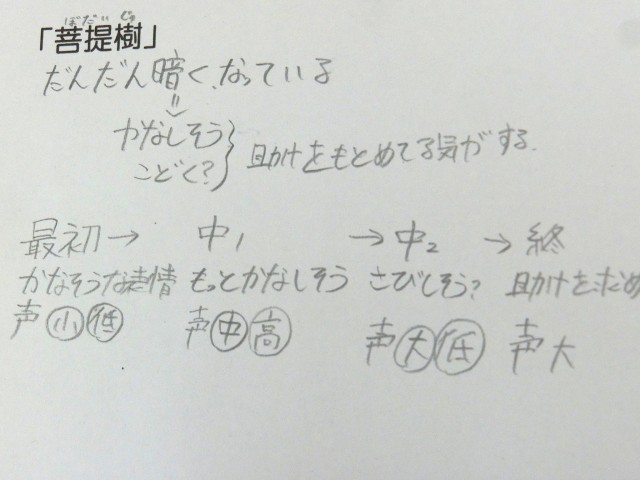 ぼだいじゅ
「菩提樹」
だんだん暗くなっている
かなしそう
こどく?
助けをもとめてる気がする.
最初→ 中1 →中2 →終
かなそうな表情 もっとかなしそう さびしそう? 助けを求め
声小低 声中高 声大低 声大